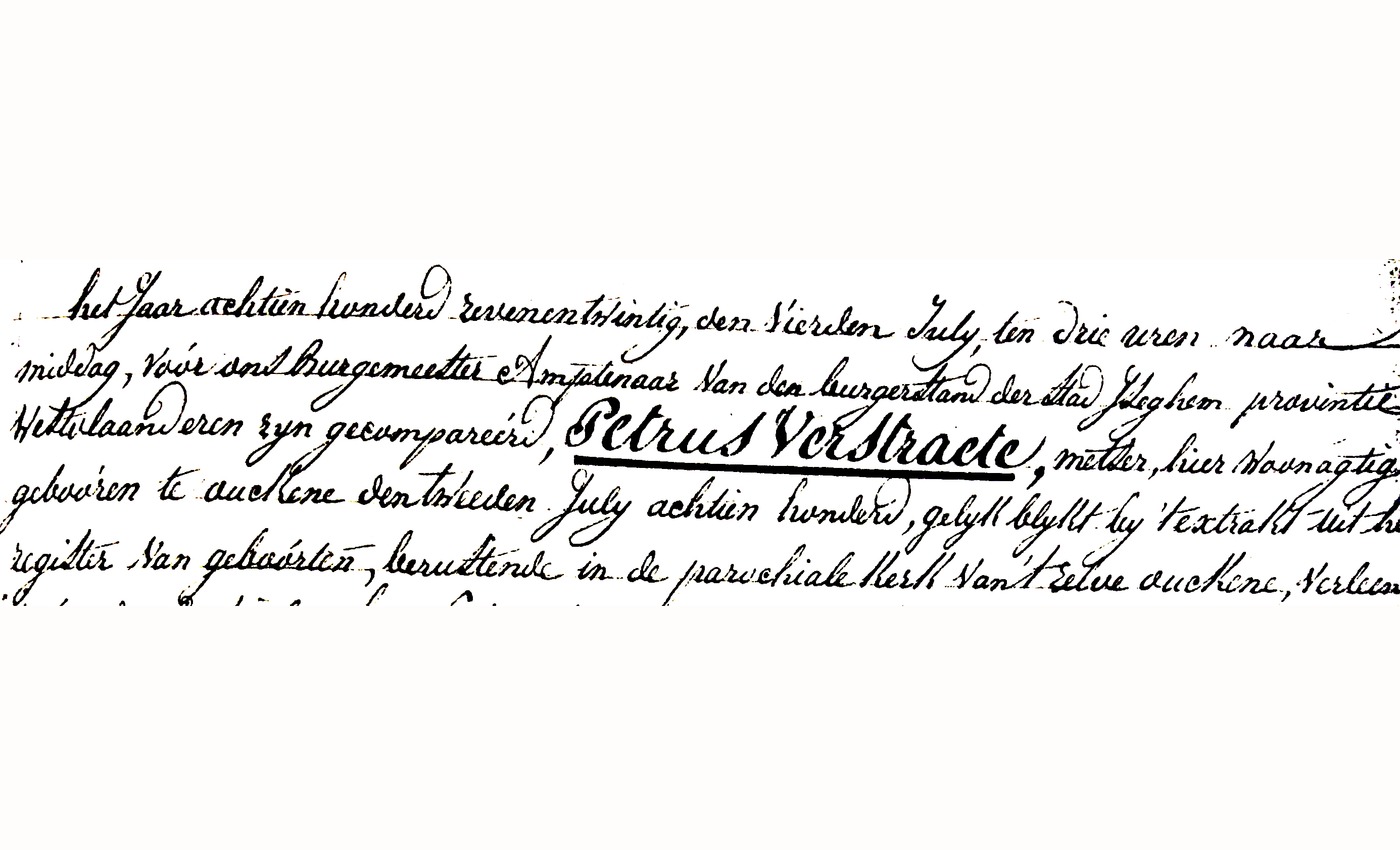 het Jaar achtien honderd zevenentwintig, den Vierden July, ten drie uren naar
middag, voór ons Burgemeester Amptenaar van den burgerstand der stad Iseghem provintie
Westvlaanderen zyn gecompareérd, Petrus Verstraete, metser, hier woonagtig
gebooren te ouckene den tweeden July achtien honderd, gelyk blykt by 't extrakt uit he
register van geboórten, berustende in de parochiale kerk van 't zelve ouckene, verleen